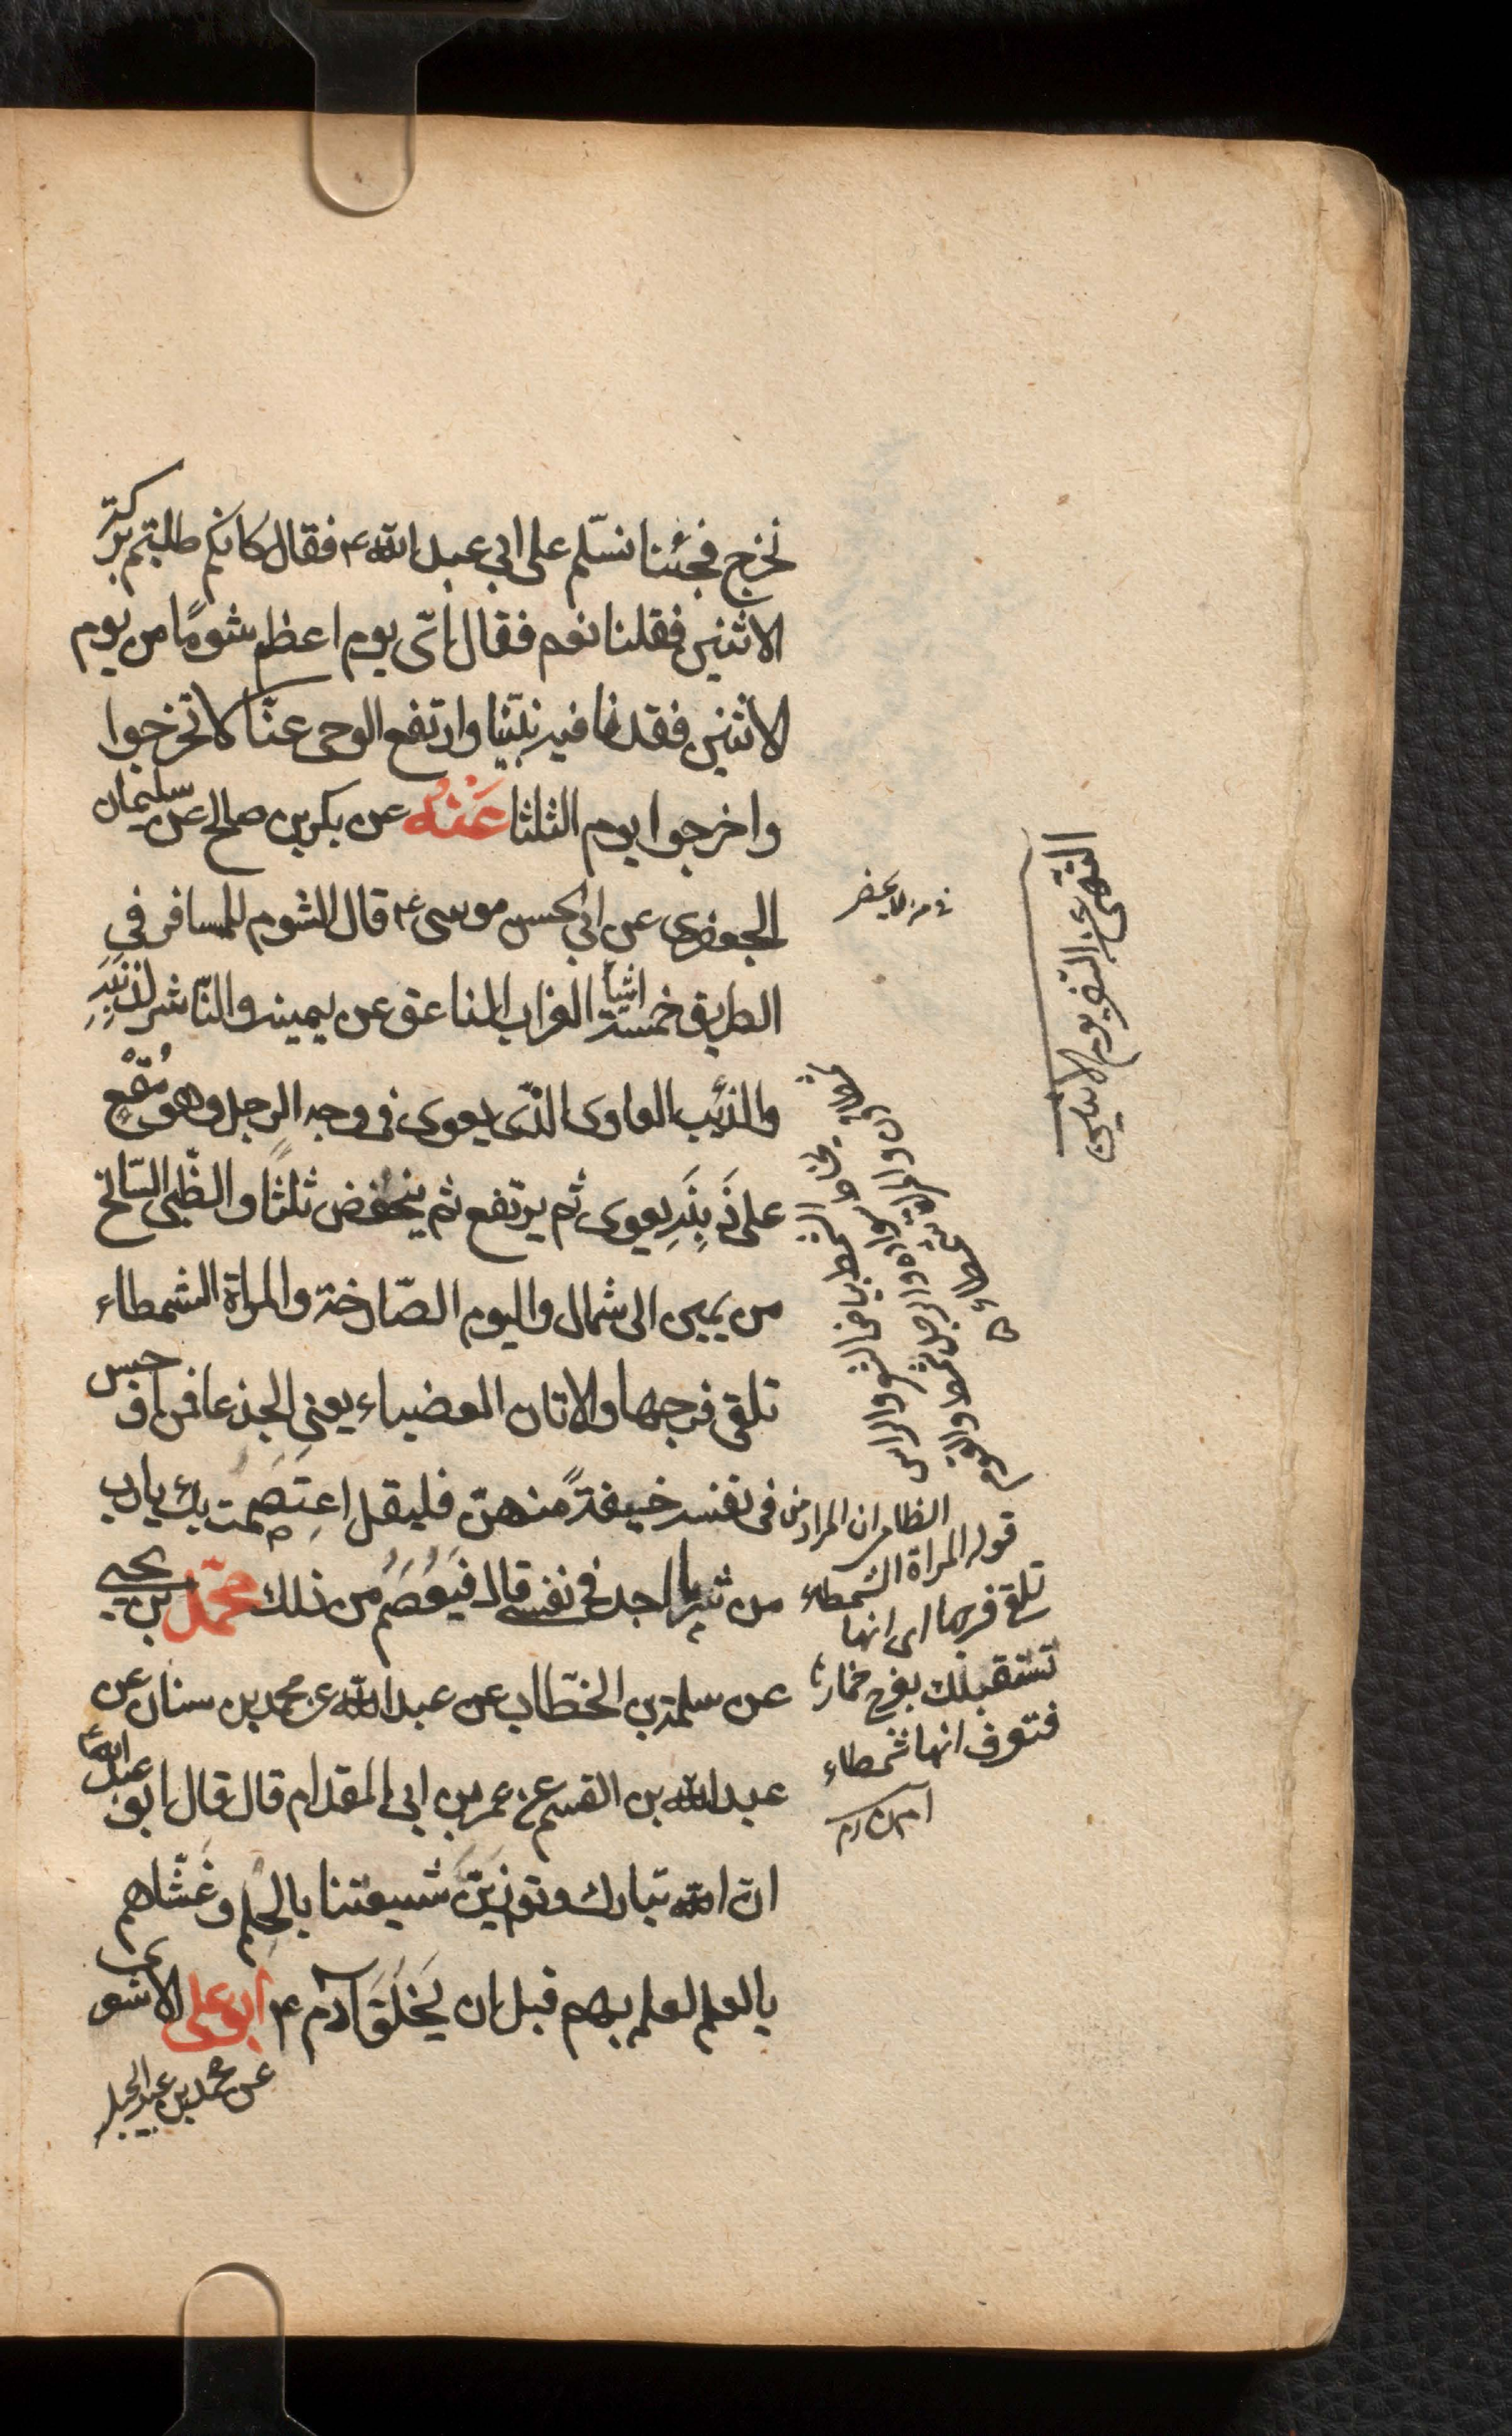 نخرج فجئنا نسلّم على ابي عبد الله ع فقال كانكم طلبتم بركة
الاثنين فقلنا نعم فقال اىّ يوم اعظم شومًا من يوم
الاثنين فقدنا فيه نبيّنا وارتفع الوحى عنّا لا تخرجوا
واخرجوا يوم الثلثا عَنْهُ عن بكر بن صالح عن سليمان
الجعفرى عن ابي الحسن موسى ع قال الشوم للمسافر في
الطريق خمسة اشيآ الغراب الناعق عن يمينه والنّاشر لذنَبِهِ
والذئب العاوى الّذى يعوى فى وجه الرجل وهو مُقْعٍ
على ذَنَبِهِ يعوى ثم يرتفع ثم ينخفض ثلثًا والظّبى السّانح
من يمين الى شمال والبوم الصّارخة والمراة الشمطاء
تلقى فرجها والاتان العضباء يعنى الجذعا فمن اوجس
فى نفسه خيفةً منهنّ فليقل اعتصمت بك يا رب
من شر ما اجد فى نفسى قال فيُعْصَمُ من ذلك محمّد بن يحيى
عن سلمة بن الخطّاب عن عبد الله عن محمد بن سنان عن
عبد الله بن القسم عن عمر بن ابي المقدام قال قال ابو عبد الله ع
ان الله تبارك وتع زيّن شيعتنا بالحلم وغشّاهم
بالعلم لعلمه بهم قبل ان يخلق آدم ع ابو على الاشعرى
عن محمد بن عبد الجبار
النّهى عن السّفر يوم الاثنين
الظاهر ان المراد من
قوله المراة الشمطاء
تلقى فرجها اى انها
تستقبلك بفرج خمارها
فتعرف انها شمطاء